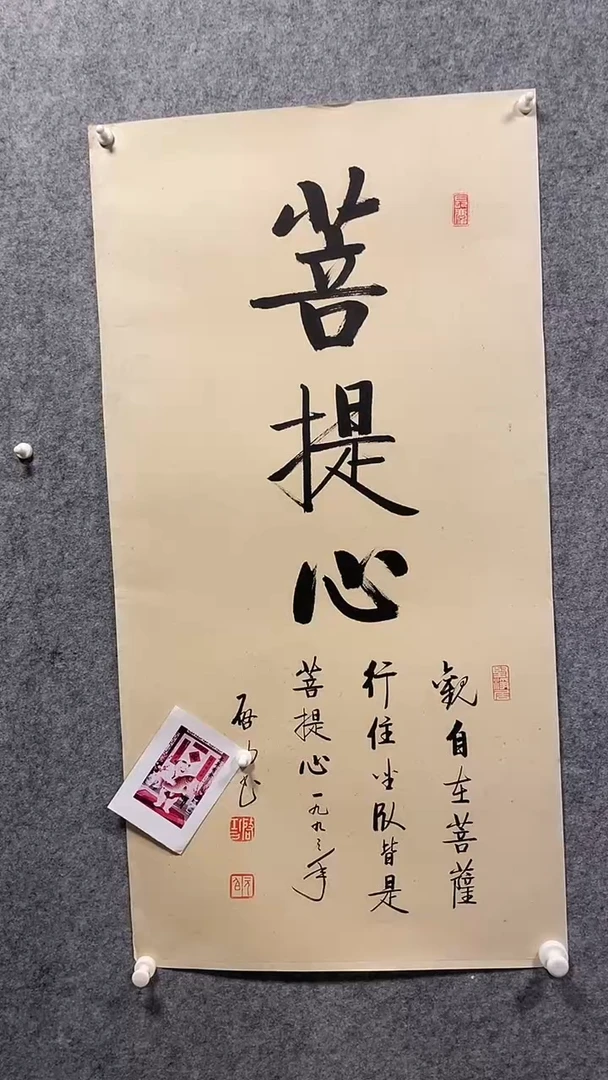 菩提心
觀自在菩薩
行住坐臥皆是
菩提心一九九二年
启